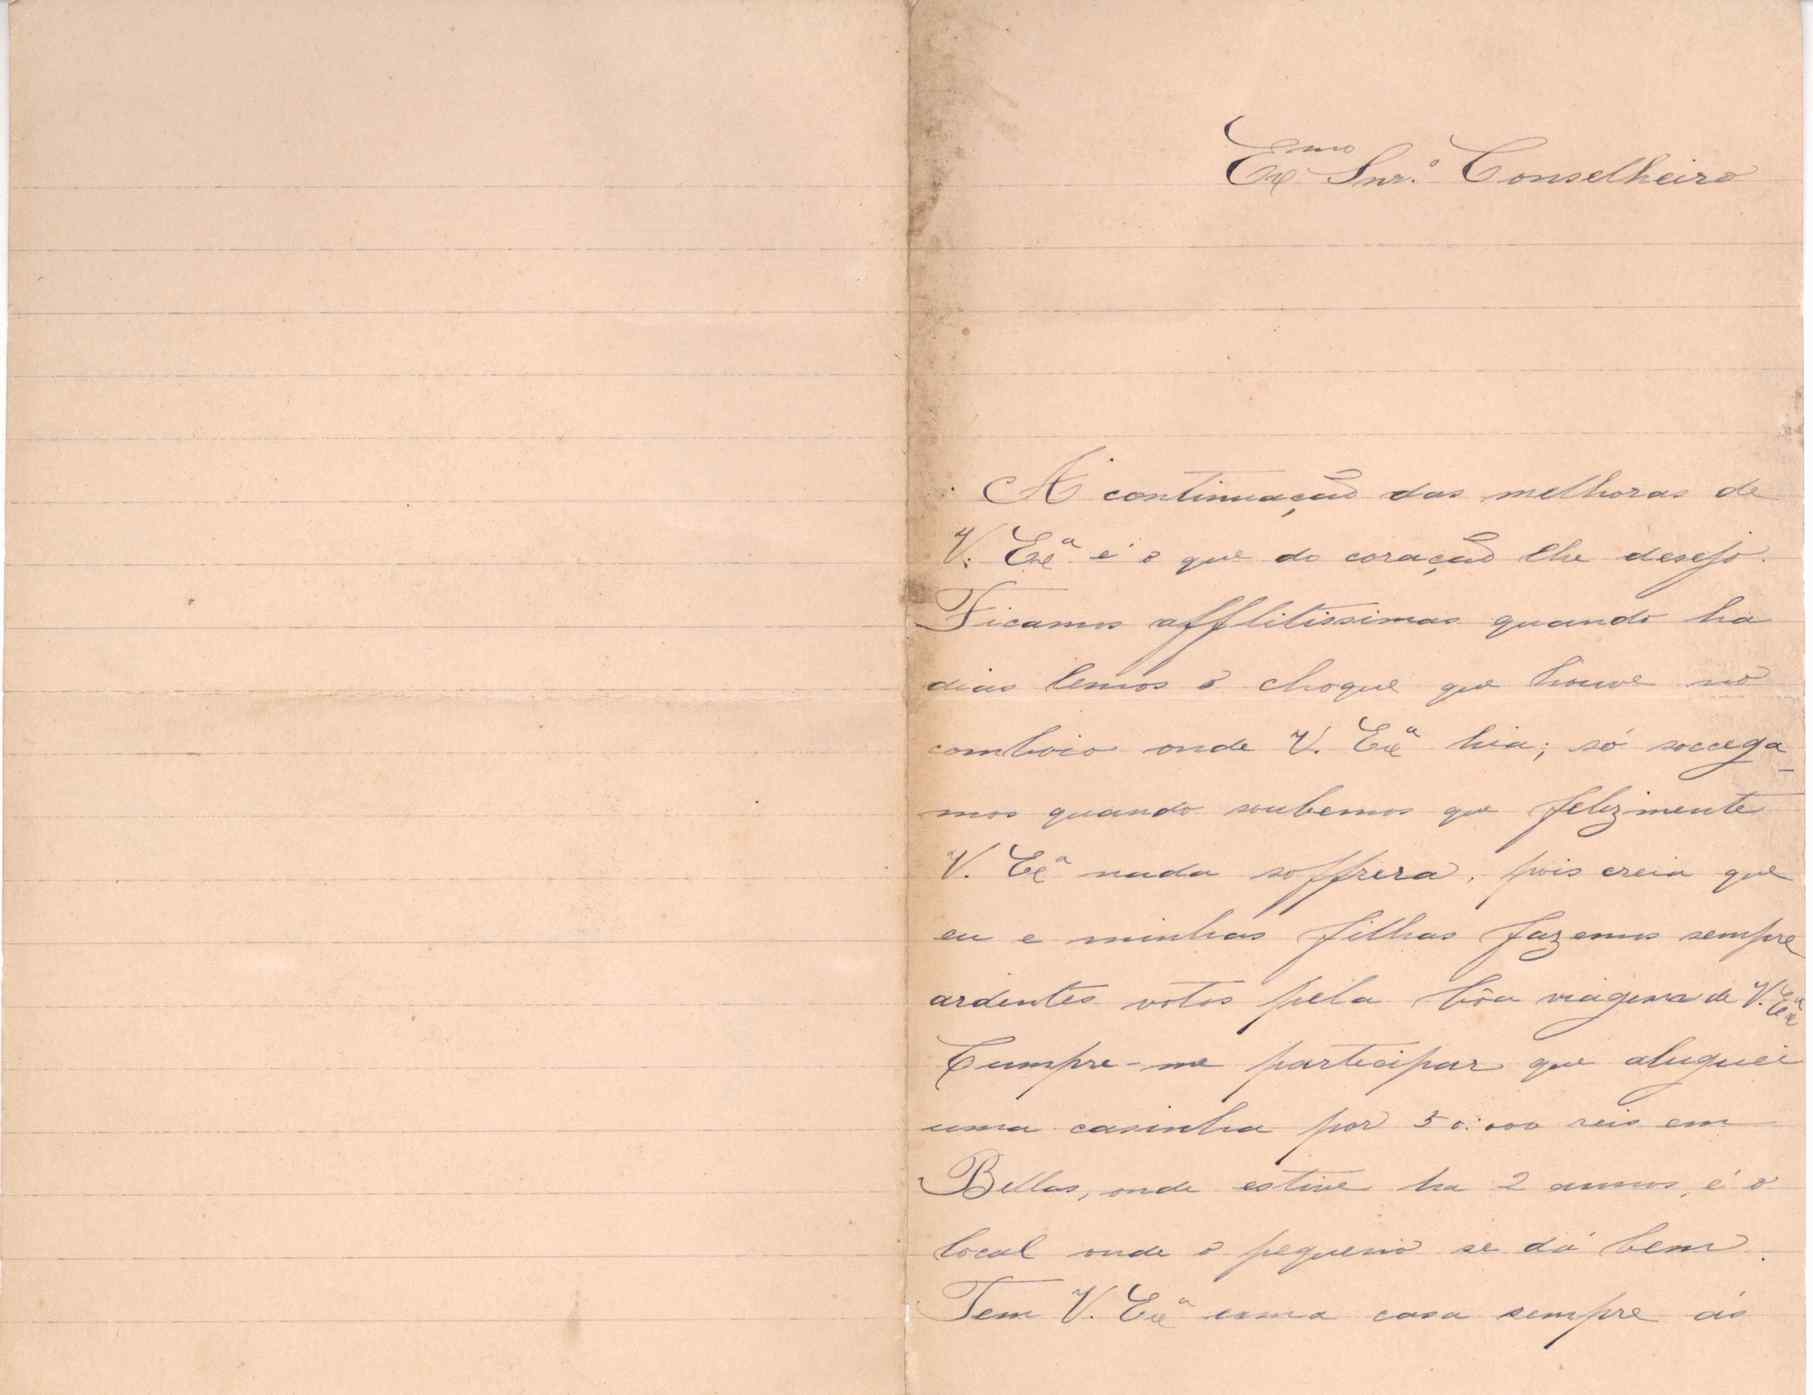 Ex.mo Snr.º Conselheiro
A continuação das melhoras de
V. Ex.ª é o que do coração lhe desejo.
Ficamos afflitissimas quando ha
dias lemos o choque que houve no
comboio onde V. Ex.ª hia; só soccega-
mos quando soubemos que felizmente
V. Ex.ª nada soffrera, pois creia que
eu e minhas filhas fazemos sempre
ardentes votos pela bôa viagem de V. Ex.ª
Cumpre-me participar que aluguei
uma casinha por 50:000 reis em
Bellas, onde estive ha 2 annos, é o
local onde o pequeno se dá bem.
Tem V. Ex.ª uma casa sempre ás